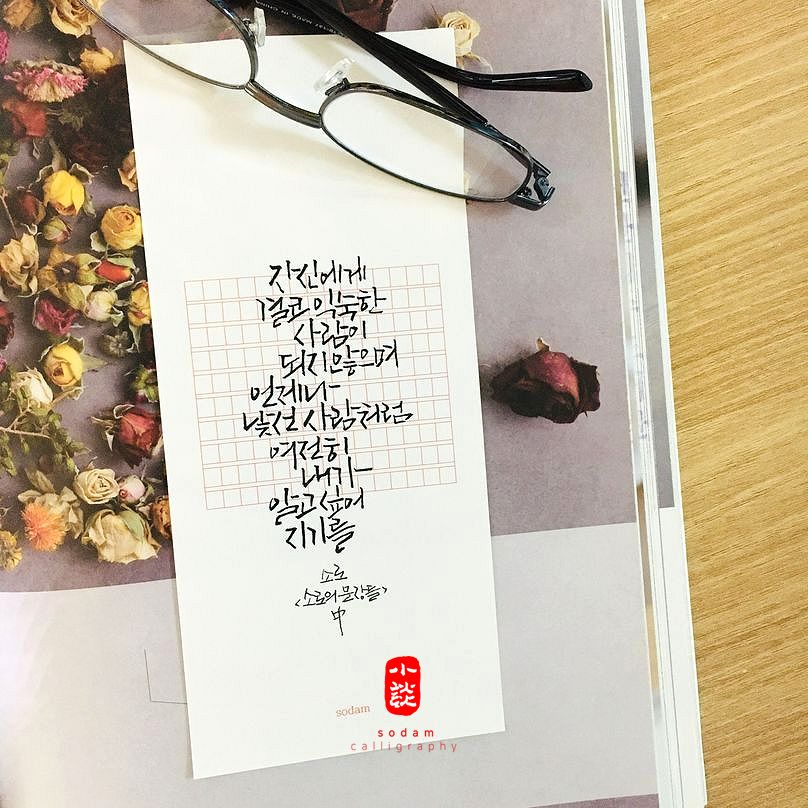 MADE IN CHINA
자신에게
결코 익숙한
사람이
되지 않으며
언제나
낯선 사람처럼
여전히
내가
알고 싶어
지기를
소로
<소로의 문장들>
中
小談
sodam
sodam
calligraphy